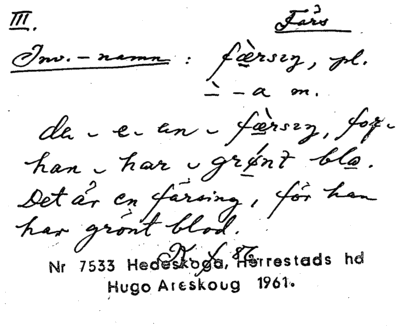 III. Färs
Inv.-namn : fæ̀rsıŋ, pl.
ˋ – a m.
de ˬ e ˬ en ˬ fæ̀rsıŋ, for ˬ
han ˬ har ˬ grønt blo.
Det är en färsing, för han
har grönt blod.
Nr 7533 Hedeskoga, Herrestads hd
Hugo Areskoug 1961.